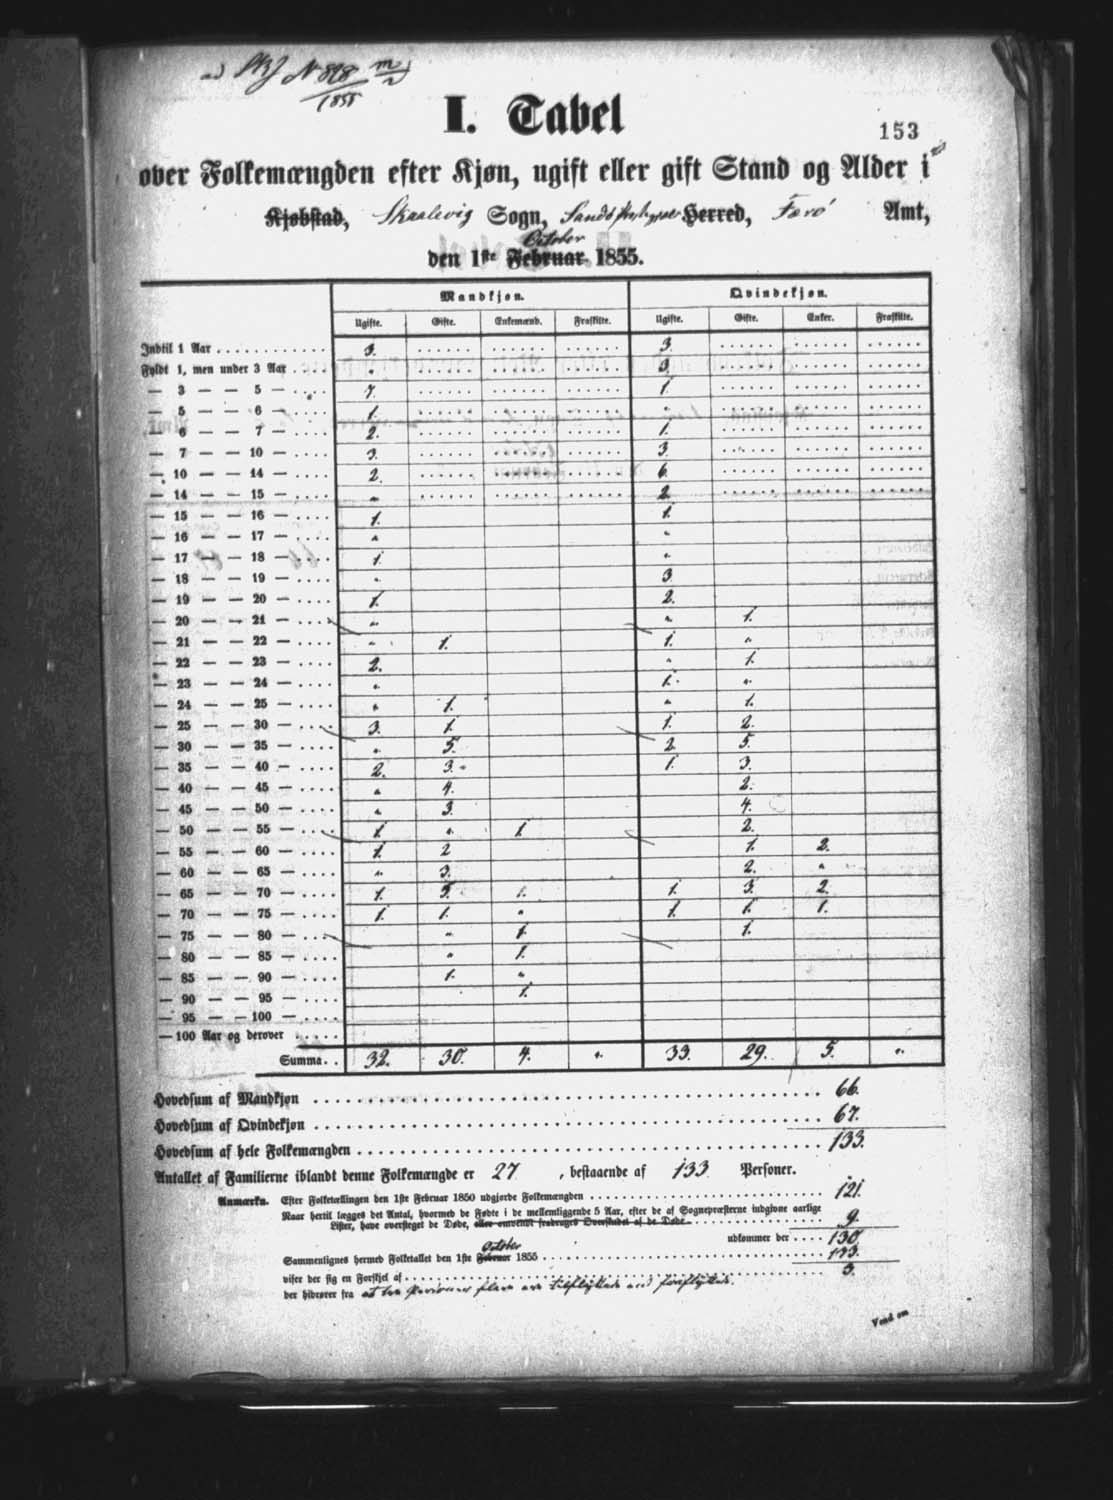 ad Skj N 898
1855
I. Tabel
153
over Folkemængden efter Kjøn, ugift eller gift Stand og Alder i
Kjøbstad, Skaalevig Sogn, Herred, Færø Amt,
October
den 1ste Februar 1855.
Mandkjøn. Qvindekjøn.
Ugifte. Gifte. Enkemænd. Fraskilte. Ugifte. Gifte. Enker. Fraskilte.
Indtil 1 Aar 3. 3.
Fyldt 1, men under 3 Aar " 3.
— 3 — — 5 — 7. 1.
— 5 — — 6 — 1. "
— 6 — — 7 — 2. 1.
— 7 — — 10 — 3. 3.
— 10 — — 14 — 2. 6.
— 14 — — 15 — " 2.
— 15 — — 16 — 1. 1.
— 16 — — 17 — " "
— 17 — — 18 — 1. "
— 18 — — 19 — " 3
— 19 — — 20 — 1. 2.
— 20 — — 21 — " " 1.
— 21 — — 22 — " 1. 1. "
— 22 — — 23 — 2. " 1.
— 23 — — 24 — " 1. "
— 24 — — 25 — " 1. " 1.
— 25 — — 30 — 3. 1. 1. 2.
— 30 — — 35 — " 5. 2. 5.
— 35 — — 40 — 2. 3. 1. 3.
— 40 — — 45 — " 4. 2.
— 45 — — 50 — " 3. 4.
— 50 — — 55 — 1. " 1. 2.
— 55 — — 60 — 1. 2 1. 2.
— 60 — — 65 — " 3. 2. "
— 65 — — 70 — 1. 5. 1. 1. 3. 2.
— 70 — — 75 — 1. 1. " 1. 1. 1.
— 75 — — 80 — " 1. 1.
— 80 — — 85 — " 1.
— 85 — — 90 — 1. "
— 90 — — 95 — 1.
— 95 — — 100 —
— 100 Aar og derover
Summa 32. 30. 4. " 33. 29. 5. "
Hovedsum af Mandkjøn 66.
Hovedsum af Qvindekjøn 67.
Hovedsum af hele Folkemængden 133.
Antallet af Familierne iblandt denne Folkemængde er 27, bestaaende af 133 Personer.
Anmærkn. Efter Folketællingen den 1ste Februar 1850 udgjorde Folkemængden 121.
Naar hertil lægges det Antal, hvormed de Fødte i de mellemliggende 5 Aar, efter de af Sognepræsterne indgivne aarlige
Lister, have oversteget de Døde, eller omvendt fradrages Overskudet af de Døde 9.
udkommer der 130
October
Sammenlignes hermed Folketallet den 1ste Februar 1855 133.
viser der sig en Forskjel af 3.
der hidrører fra at tre Personer flere ere tilflyttede end fraflyttede.
Vend om